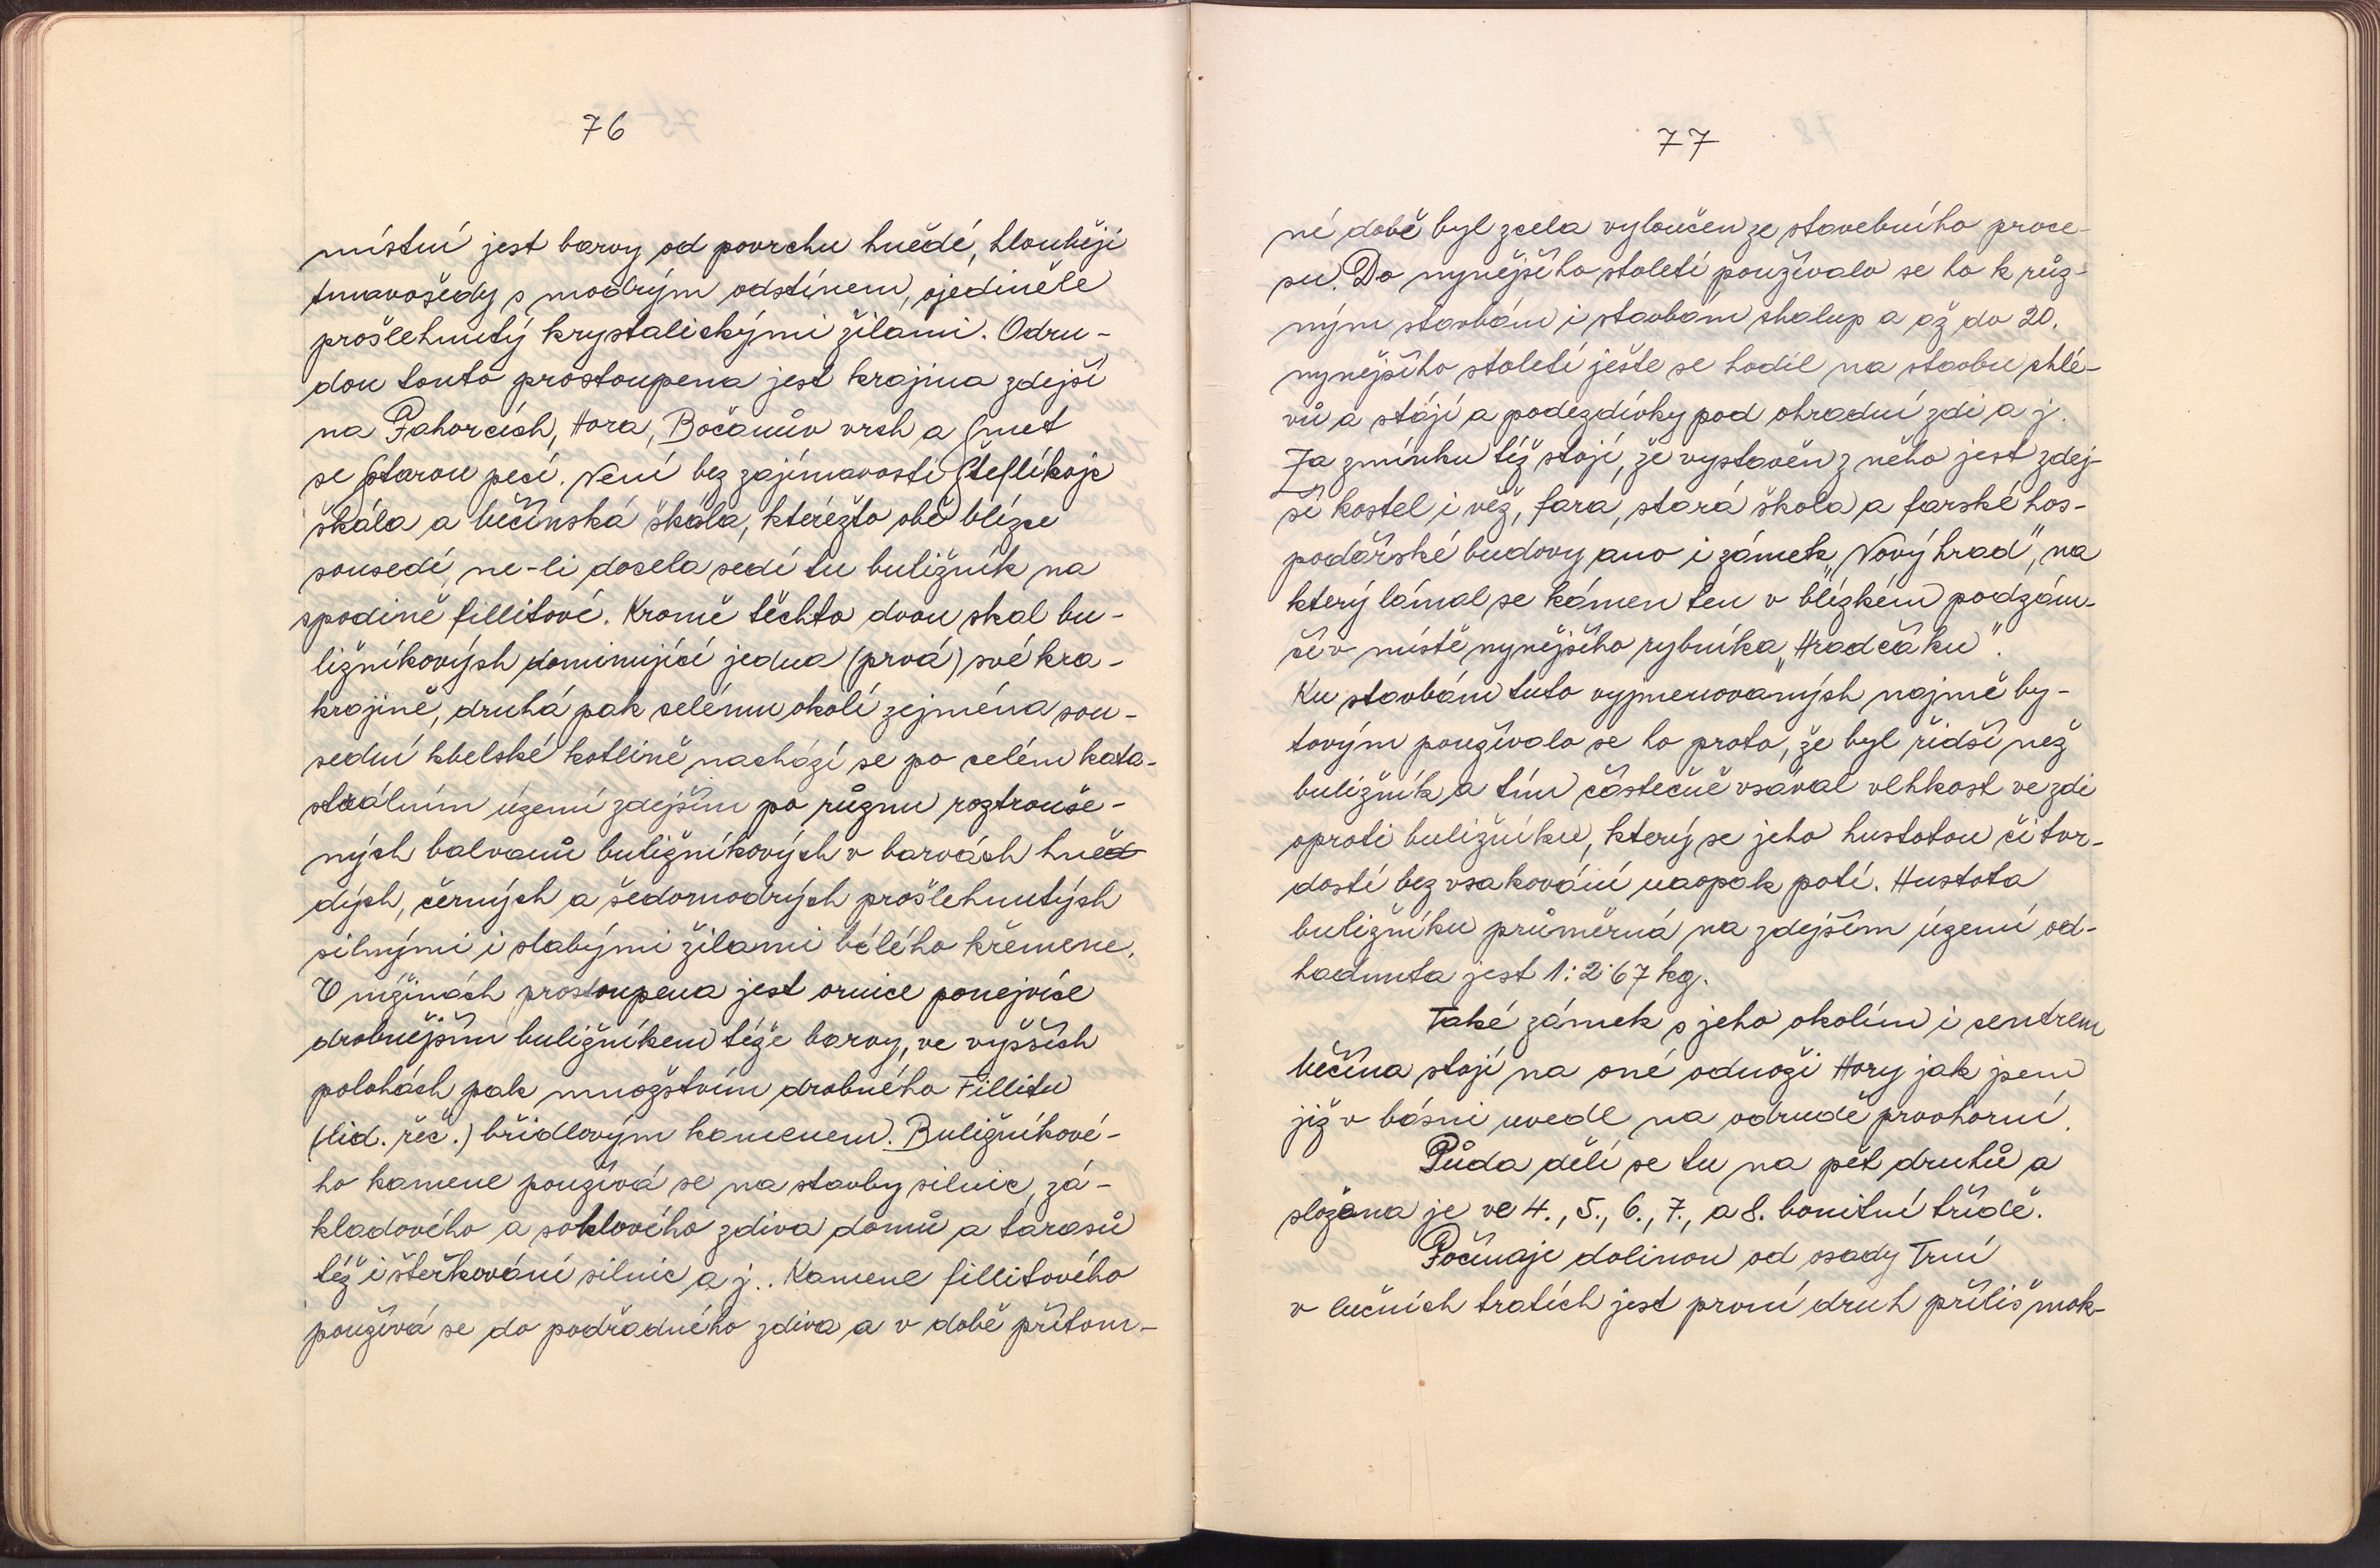 76
místní jest barvy od povrchu hnědé, hlouběji
tmavošedý s modrým odstínem, ojediněle
prošlehnutý krystalickými žilami. Odru-
dou touto prostoupena jest krajina zdejší
na Pahorcích, Hora, Bočanův vrch a
se starou pecí. Není bez zajímavosti Šteflíkoje
skála a bečínská skála, kteréžto obě blízce
sousedí, ne-li docela sedí tu buližník na
spodině fillitové. Kromě těchto dvou skal bu-
ližníkových dominující jedna (prvá) své kra-
krajině, druhá pak celému okolí zejména sou-
sední kbelské kotlině nachází se po celém kata-
strálním území zdejším po různu roztrouše-
ných balvanů buližníkových v barvách hněd
dých, černých a šedomodrých prošlehnutých
silnými i slabými žilami bělého křemene.
V nížinách prostoupena jest ornice ponejvíce
drobnějším buližníkem téže barvy, ve vyšších
polohách pak množstvím drobného Fillitu
(lid. řeč.) břidlovým kamenem. Buližníkové-
ho kamene používá se na stavby silnic, zá-
kladového a soklového zdiva domů a tarasů
též i štěrkování silnic a j.. Kamene fillitového
používá se do podřadného zdiva a v době přítom-
77
né době byl zcela vyloučen ze stavebního proce-
su. Do nynějšího století používalo se ho k růz-
ným stavbám i stavbám chalup a až do 20.
nynějšího století ješte se hodil na stavbu chlé-
vů a stájí a podezdívky pod ohradní zdi a j.
Za zmínku též stojí, že vystavěn z něho jest zdej-
ší kostel i věž, fara, stará škola a farské hos-
podářské budovy ano i zámek „Nový hrad", na
který lámal se kámen ten v blízkém podzám-
čí v místě nynějšího rybníka „Hradčáku".
Ku stavbám tuto vyjmenovaných najmě by-
tovým používalo se ho proto, že byl řidší než
buližník a tím částečně vsával vlhkost ve zdi
oproti buližníku, který se jeho hustotou či tvr-
dostí bez vsakování naopak potí. Hustota
buližníku průměrná na zdejším území od-
hadnuta jest 1:2·67 kg.
Také zámek s jeho okolím i centrem
bečína stojí na oné odnoži Hory jak jsem
již v básni uvedl na odrudě prvohorní.
Půda dělí se tu na pět druhů a
složena je ve 4., 5., 6., 7., a 8. bonitní třídě.
Počínaje dolinou od osady Trní
v lučních tratích jest první druh příliš mok-